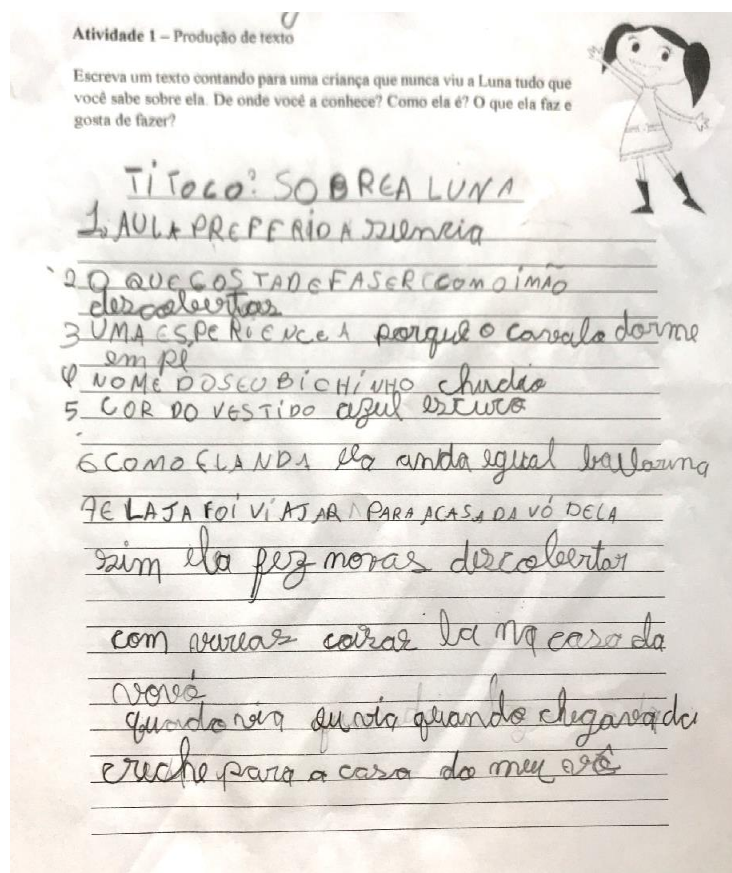 Atividade 1 – Produção de texto
Escreva um texto contando para uma criança que nunca viu a Luna tudo que
você sabe sobre ela. De onde você a conhece? Como ela é? O que ela faz e
gosta de fazer?
TÍTOCO: SOBREA LUNA
1. AULA PREFERIDA siencia
2 O QUE GOSTA DE FASER COM O IMÃO
descobertas
3 UMA ESPERIENCEA porque o cavalo dorme
em pé
4 NOME DO SEU BICHINHO
5. COR DO VESTIDO azul escuro
6 COMO ELANDA ela anda egual bailarina
7 E LA JA FOI VIAJAR PARA ACASA DA VÓ DELA
sim ela fez novas descobertas
com varias coisas la na casa da
vovó
quando chegava da
creche para a casa do meu